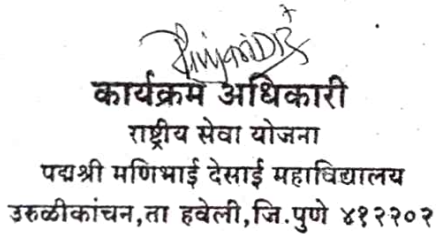 कार्यक्रम अधिकारी
राष्ट्रीय सेवा योजना
पद्मश्री मणिभाई देसाई महाविद्यालय
उरुळीकांचन,ता हवेली,जि.पुणे ४१२२०२